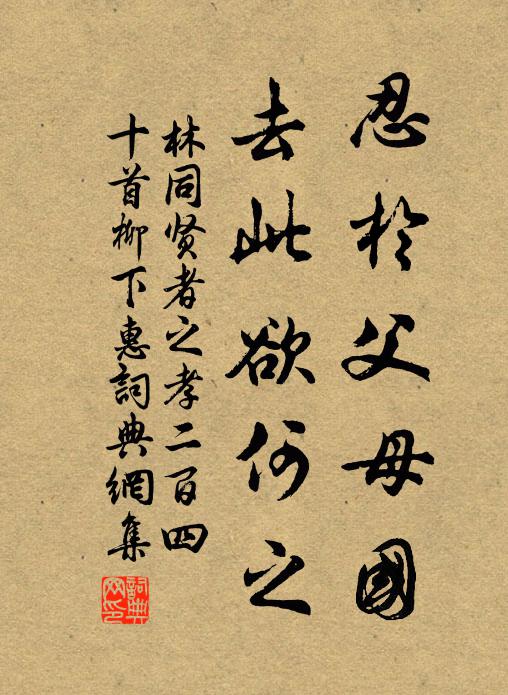 忍於父母國
去此欲何之
林同贤者之孝二百四
十首柳下惠詞典網集
詞典网印